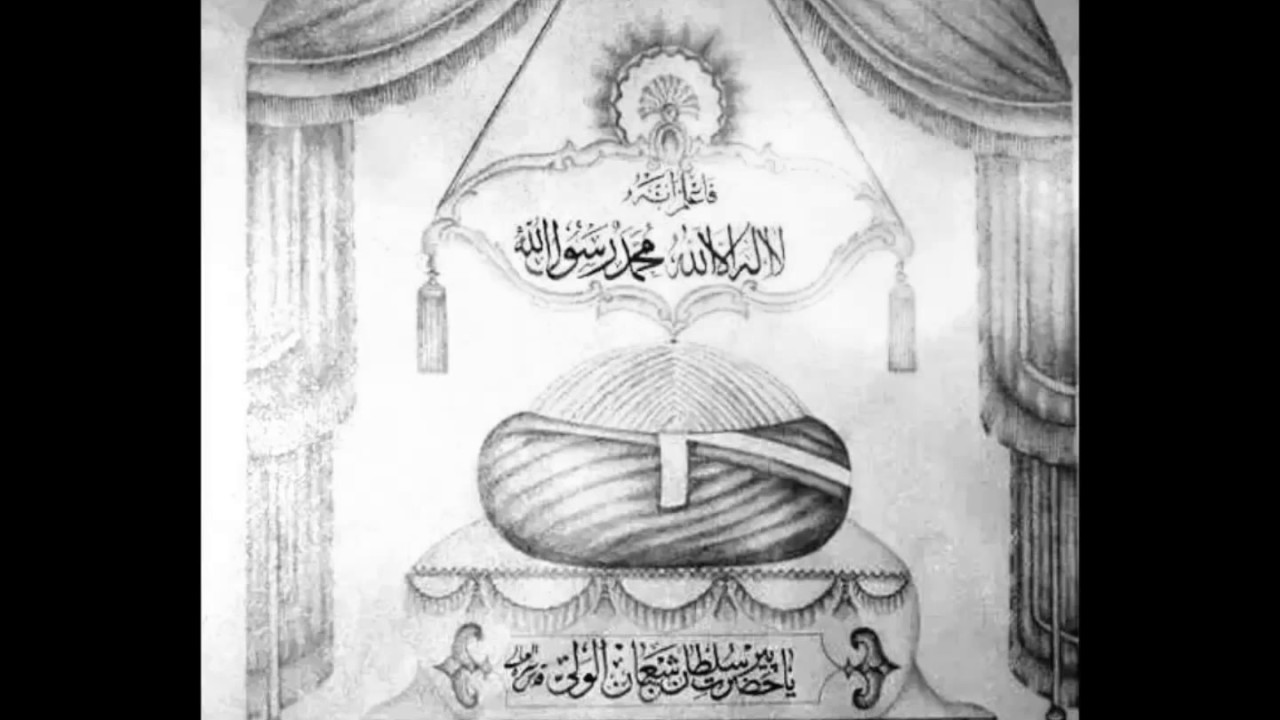 فَاعْلَمْ اَنَّهُ
لا اله الا الله محمد رسول الله
یا حضرت پیر سلطان شعبان الولی